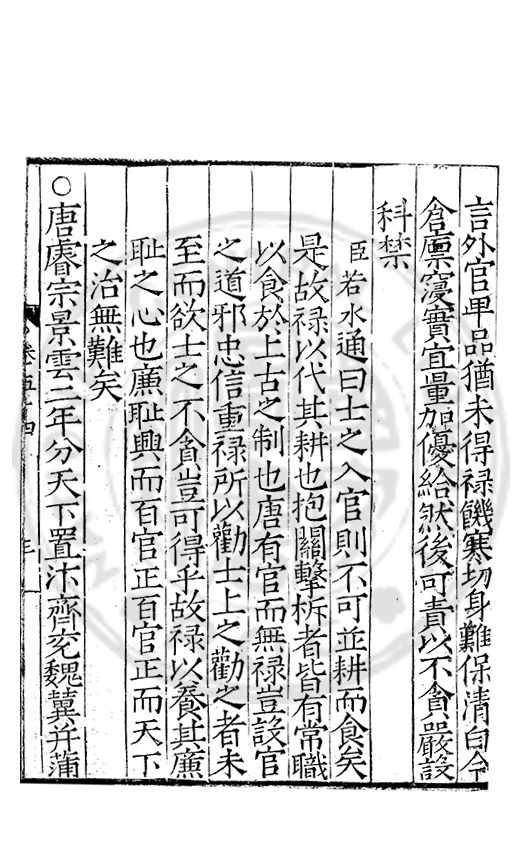 言外官卑品猶未得禄饑寒切身難保清白今
倉廪寖實宜量加優給然後可責以不貪嚴設
科禁
臣若水通曰士之入官則不可並耕而食矣
是故禄以代其耕也抱關擊柝者皆有常職
以食於上古之制也唐有官而無禄豈設官
之道邪忠信重禄所以勸士上之勸之者未
至而欲士之不貪豈可得乎故禄以養其廉
耻之心也廉耻興而百官正百官正而天下
之治無難矣
○唐睿宗景雲二年分天下置汴齊兖魏冀并蒲